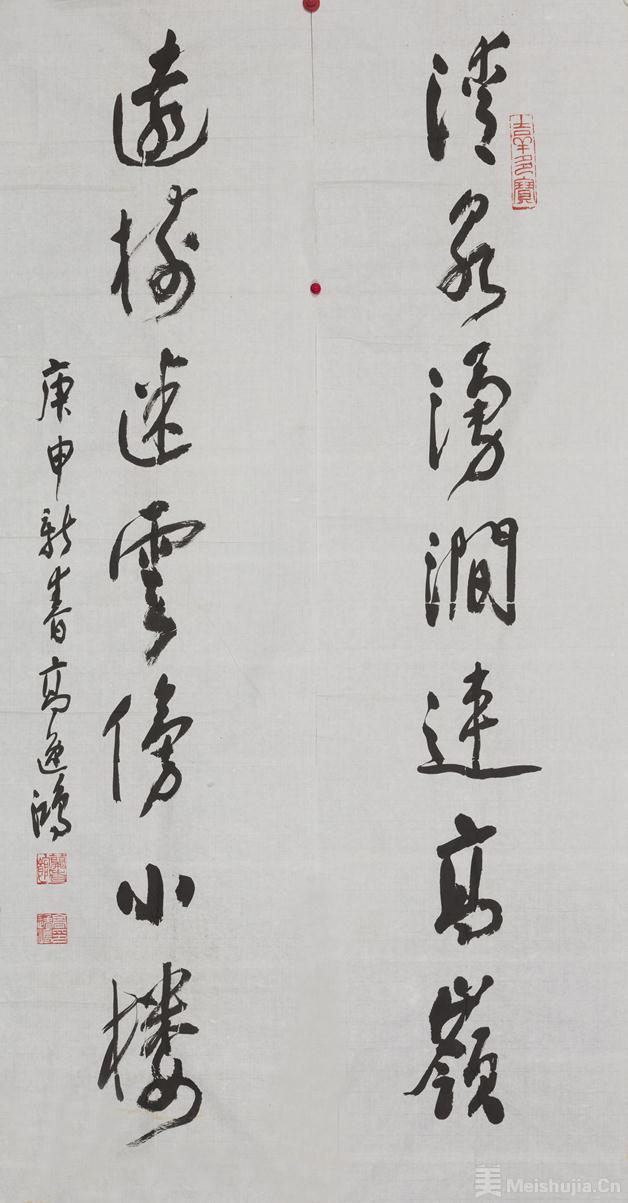 清泉湧澗連高嶺
吉羊多寶
遠樹迷雲傍小樓
庚申新春高逸鴻
美 Meishujia.Cn